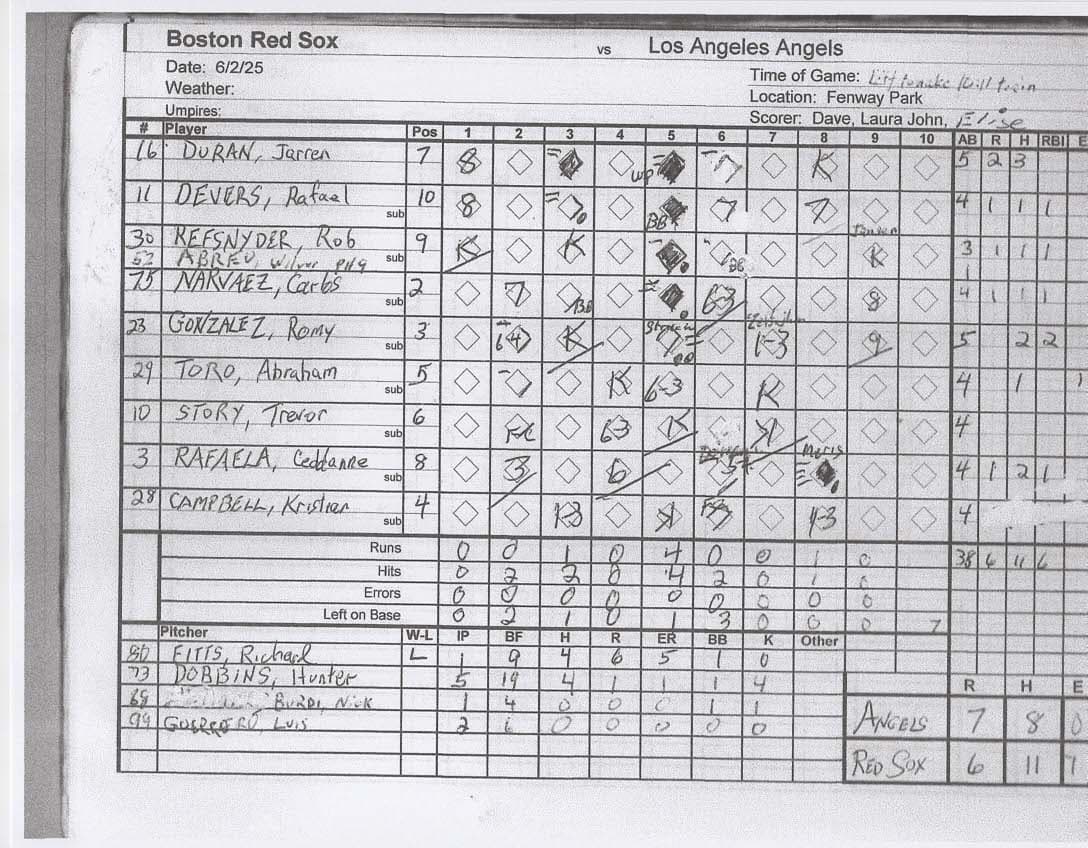 Boston Red Sox vs Los Angeles Angels
Date: 6/2/25
Time of Game:
Weather:
Location: Fenway Park
Umpires:
Scorer: Dave, Laura John, Elise
# Player Pos 1 2 3 4 5 6 7 8 9 10 AB R H RBI E
16 DURAN, Jarren 7 8 WP 7 K 5 2 3
11 DEVERS, Rafael sub 10 8 7 BB 7 7 4 1 1 1
30 REFSNYDER, Rob 9 K K K 3 1 1 1
52 ABREU, Wilyer PH9 sub BB 1
75 NARVAEZ, Carlos sub 2 7 BB 6-3 8 4 1 1 1
23 GONZALEZ, Romy sub 3 64 K 7 1-3 9 5 2 2
29 TORO, Abraham sub 5 7 K 6-3 K 4 1 1
10 STORY, Trevor sub 6 FC 63 K K 4
3 RAFAELA, Ceddanne sub 8 3 6 5 4 1 2 1
28 CAMPBELL, Kristian sub 4 1-3 K 1-3 4
Runs 0 0 1 0 4 0 0 1 0 38 6 11 6
Hits 0 2 2 0 4 2 0 1 0
Errors 0 0 0 0 0 0 0 0 0
Left on Base 0 2 1 0 1 3 0 0 0 7
Pitcher W-L IP BF H R ER BB K Other
80 FITTS, Richard L 1 9 4 6 5 1 0
73 DOBBINS, Hunter 5 19 4 1 1 1 4
BURDI, Nick 1 4 0 0 0 1 1
99 GUERRERO, Luis 2 6 0 0 0 0 0
R H E
ANGELS 7 8 0
RED SOX 6 11 1